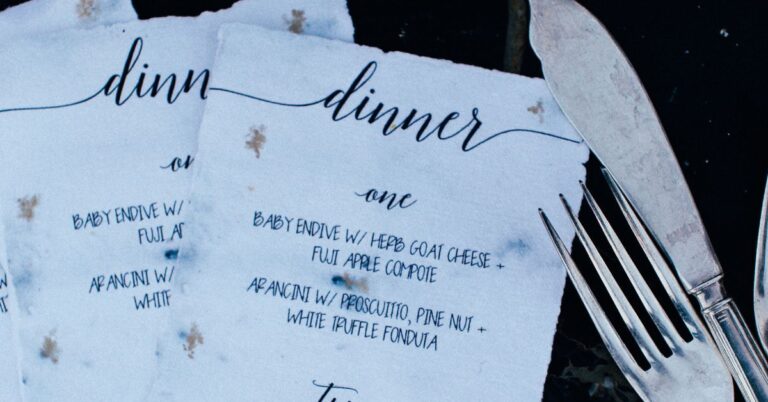 dinn
on
BABY ENDIVE W/
FUJI
ARANCINI W/
WHIT
dinner
one
BABY ENDIVE W/ HERB GOAT CHEESE +
FUJI APPLE COMPOTE
ARANCINI W/ PROSCUITTO, PINE NUT +
WHITE TRUFFLE FONDUTA